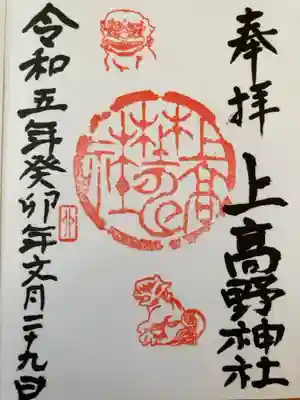 奉拝
上高野神社
令和五年癸卯年文月二十九日